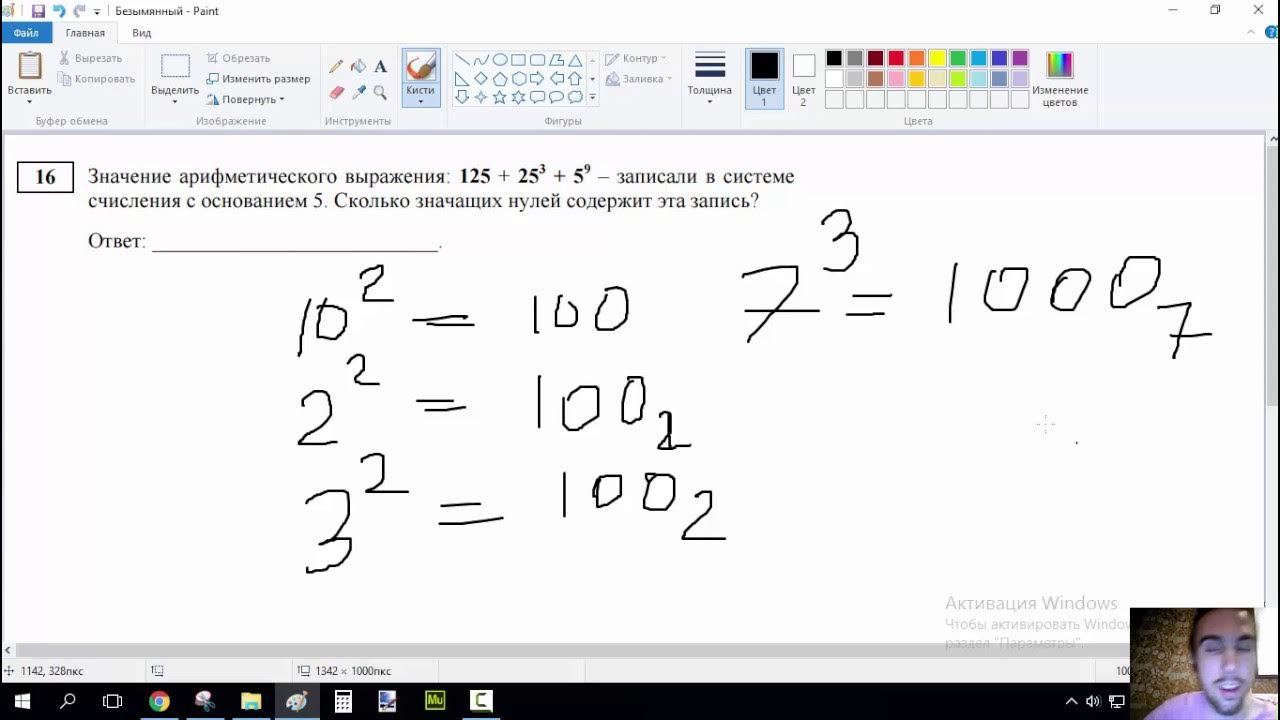 Безымянный - Paint
Файл Главная Вид
Вставить
Вырезать
Копировать
Буфер обмена
Выделить
Обрезать
Изменить размер
Повернуть
Изображение
A
Инструменты
Кисти
Контур
Заливка
Фигуры
Толщина
Цвет 1
Цвет 2
Изменение цветов
Цвета
16 Значение арифметического выражения: 125 + 25³ + 5⁹ – записали в системе
счисления с основанием 5. Сколько значащих нулей содержит эта запись?
Ответ: ____________________________.
10² = 100
2² = 100₂
3² = 100₂
7³ = 1000₇
Активация Windows
Чтобы активировать Window
раздел "Параметры".
1142, 328пкс
1342 × 1000пкс
100
Mu